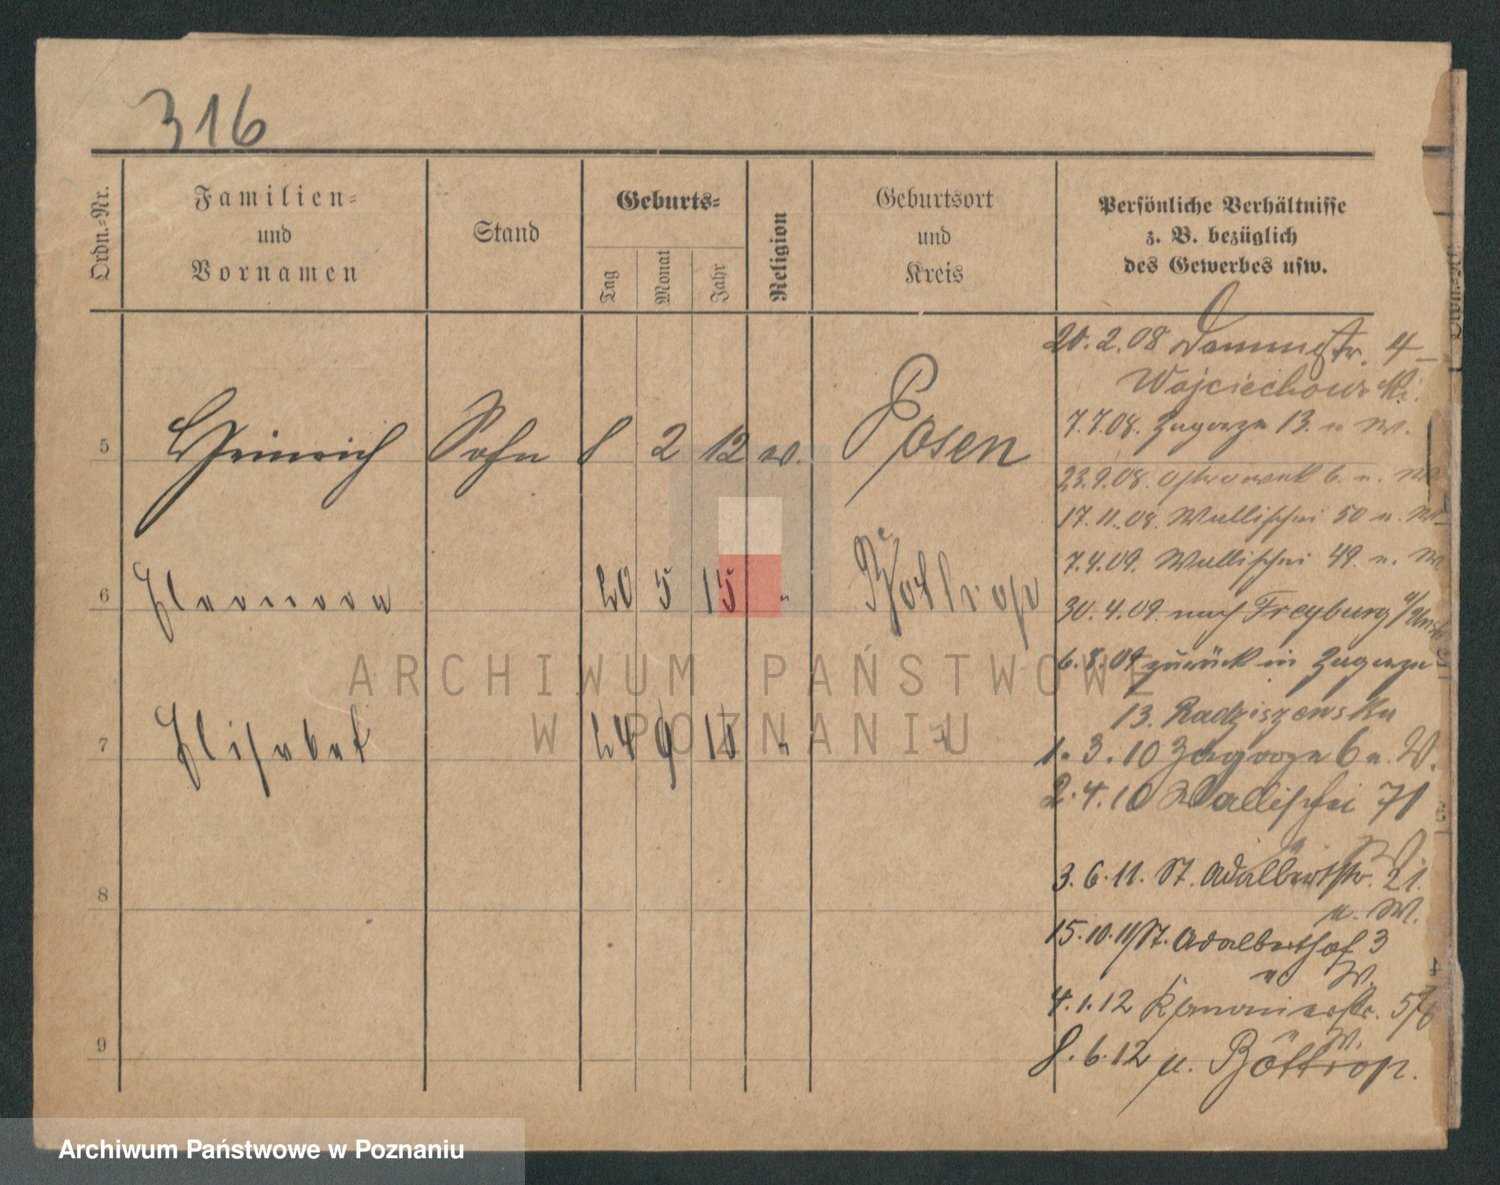 316
Ordn.-Nr.
Familien-
und
Vornamen
Stand
Geburts-
Tag
Monat
Jahr
Religion
Geburtsort
und
Kreis
Persönliche Verhältnisse
z. B. bezüglich
des Gewerbes usw.
5 Heinrich Sohn 8 2 12 w. Posen
6 Eleonora 20 5 15 " Bottrop
7 Elisabet 24 9 "
8
9
20.2.08 Dammstr. 4
Wojciechowski.
7.7.08. Zagorze 13. u W.
23.9.08. Ostrowek 6. u.
17.11.08. Wallischei 50 u. W
7.4.09. Wallischei 49. u. W
30.4.09. nach Freyburg a/Unst
6.8.09 zurück in Zagorze
13. Radziszewska
1.3.10 Zagorze 6 u. W.
2.4.10 Wallischei 71
u W
3.6.11. St. Adalbertstr. 21.
u. W.
15.10.11 St. Adalberthof 3
u W.
4.1.12 Kanonierstr. 5/6
u W.
8.6.12 n. Bottrop.
ARCHIWUM PAŃSTWOWE
W POZNANIU
Archiwum Państwowe w Poznaniu